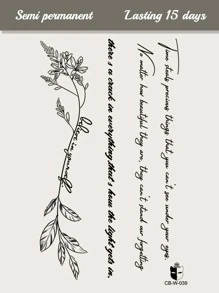 Semi permanent Lasting 15 days
Time steals precious things that you can't see under your eyes.
No matter how beautiful they are, they can't stand our forgetting
there's a crack in everything,that's how the light gets in.
believe in yourself
CB-W-039